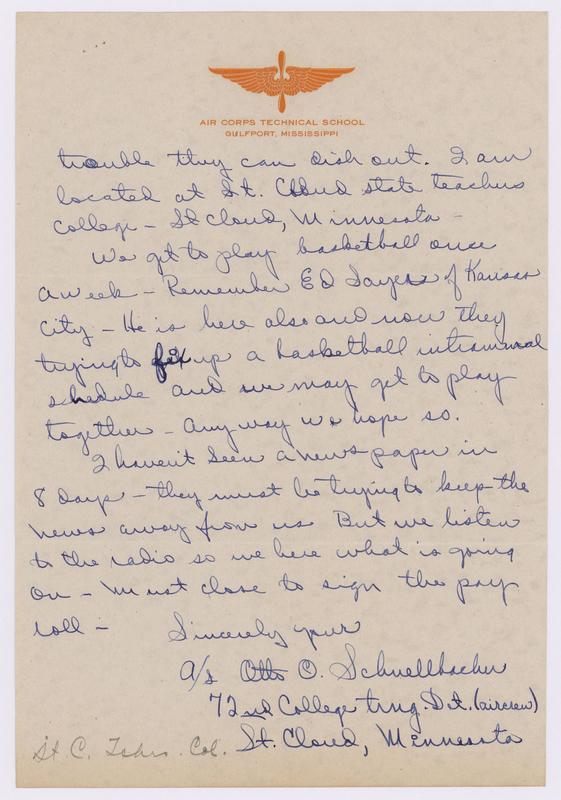 AIR CORPS TECHNICAL SCHOOL
GULFPORT, MISSISSIPPI
trouble they can dish out. I am
located at St. Cloud state teachers
College - St Cloud, Minnesota -
We get to play basketball once
a week - Remember Ed Sayers of Kansas
City - He is here also and now they
trying to fix up a basketball intramural
schedule and we may get to play
together - Anyway we hope so.
I haven't seen a news paper in
8 days - they must be trying to keep the
news away from us But we listen
to the radio so we here what is going
on - Must close to sign the pay
roll -
Sincerely your
a/s Otto O. Schnellbacher
72nd College trng. Det. (aircrew)
St. Cloud, Minnesota
St. C. Tchrs. Col.